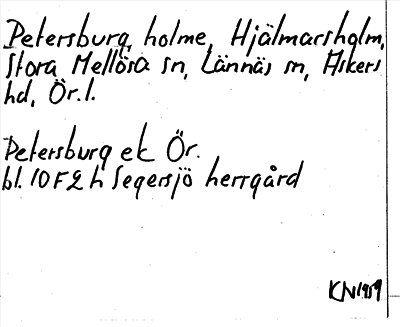 Petersburg, holme, Hjälmarsholm,
Stora Mellösa sn, Lännäs sn, Askers
hd, Ör. l.
Petersburg ek Ör.
bl. 10F2h Segersjö herrgård
KN 1959